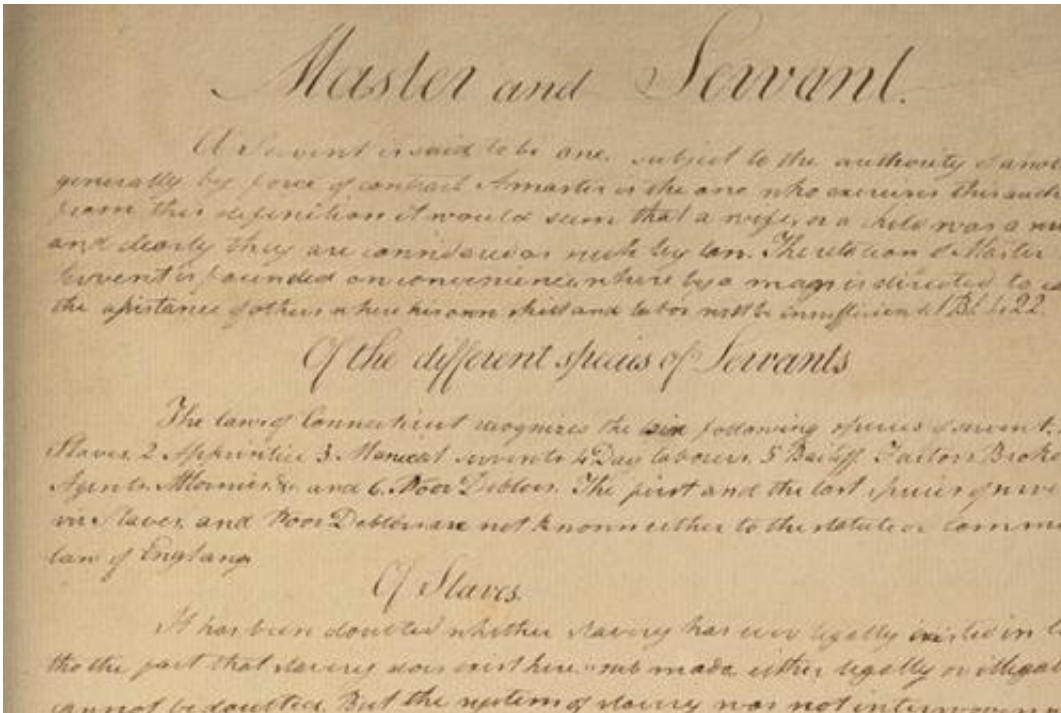 Master and Servant.
A Servent is said to be one, subject to the authority of
generally by force of contract A master is the one who exercises this
From this definition it would seem that a wife, or a child was a
and clearly they are considered as such by law. The relation of Master
Servent is founded on convenience whereby a man is directed to
the assistance of others where his own skill and labor will be insufficient 1 Bl. 422.
Of the different species of Servants
The law of Connecticut recognizes the six following species of servent.
Slaves. 2 Apprentice 3 Menial servents 4 Day labourers. 5 Bailiff. Factors
Agents. Attornies. &c and 6. Poor Debtors. The first and the last species of
viz Slaves. and Poor Debtors are not known either to the statute or
law of England
Of Slaves.
It has been doubted whether slavery has ever legally existed in
tho the fact that slavery does exist here made, either legally or
cannot be doubted. But the system of slavery was not